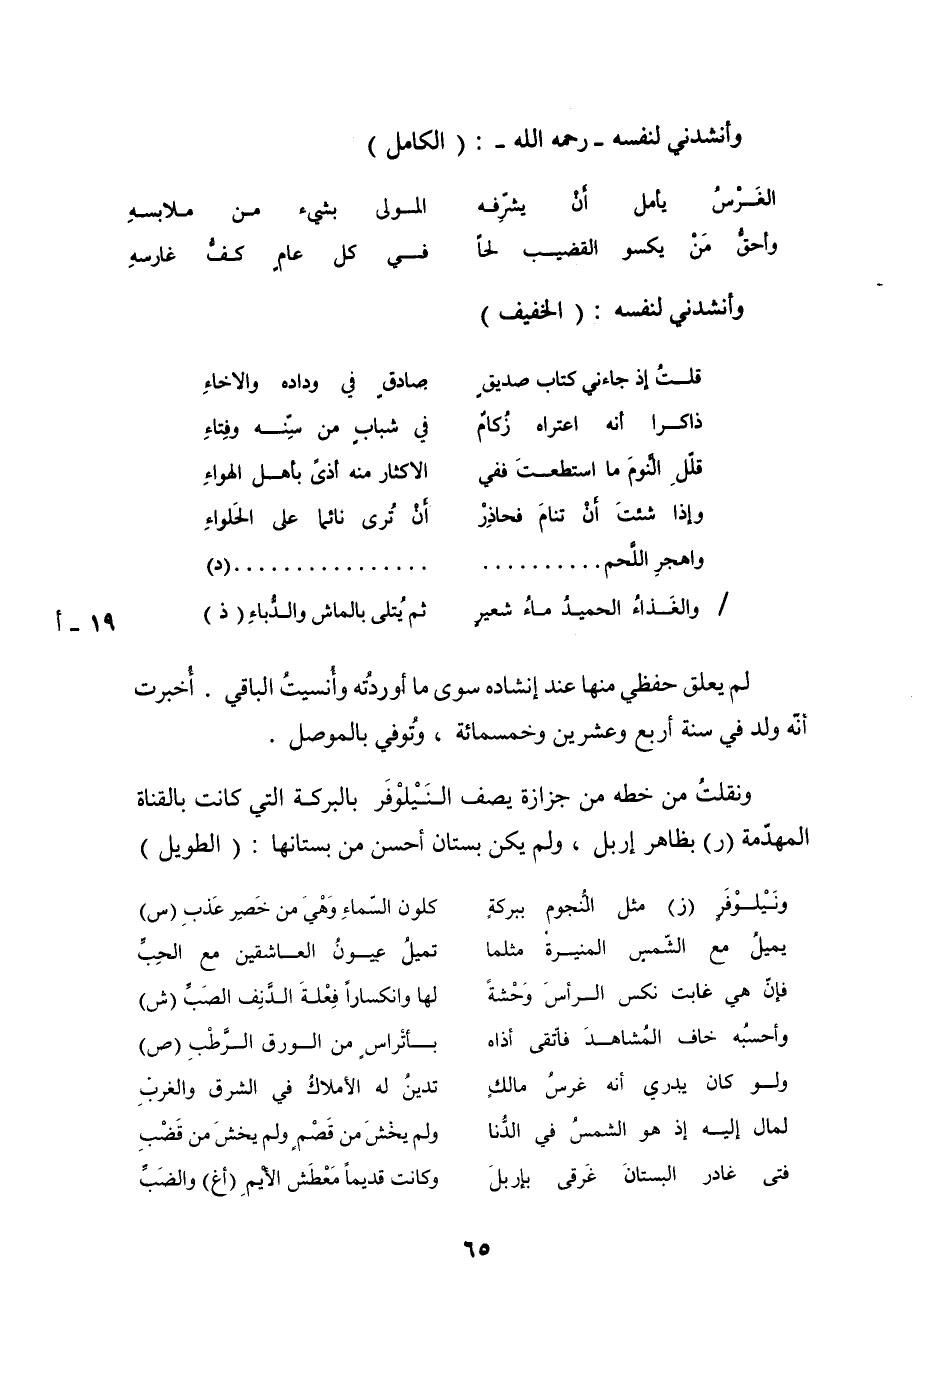 وأنشدني لنفسه ـ رحمه الله ـ : ( الكامل )
الغَـرْسُ يأمل أنْ يشرّفه المـولى بشيء مـن مـلابسـهِ
وأحقُّ مَنْ يكسو القضيـب لحاً فـي كل عامٍ كـفُّ غارسهِ
وأنشدني لنفسه : ( الخفيف )
قلـتُ إذ جاءني كتاب صديقٍ صادقٍ في وداده والاخاءِ
ذاكـرا أنه اعتراه زُكامٌ في شبابٍ من سِنّـه وفِتاءِ
قلّلِ النَّومَ ما استطعـتَ ففي الاكثار منه أذىً بأهـل الهواءِ
وإذا شئتَ أنْ تنامَ فحاذِرْ أنْ تُرى نائما على الحَلواءِ
واهجرِ اللَّحم.......... ................(د)
/ والغَـذاءُ الحميدُ مـاءُ شعيرٍ ثم يُتلى بالماش والـدُّباءِ ( ذ )
١٩ ـ أ
لم يعلق حفظي منها عند إنشاده سوى ما أوردتُه وأُنسيتُ الباقي . أُخبرت
أنّه ولد في سنة أربع وعشرين وخمسمائة ، وتُوفي بالموصل .
ونقلتُ من خطه من جزازة يصف الـنَيْلوْفَر بالبركـة التي كانت بالقناة
المهدّمة (ر) بظاهر إربل ، ولم يكن بستان أحسن من بستانها : ( الطويل )
ونَيْلـوْفَرٍ (ز) مثل النُّجوم ببركةٍ كلون السَّماءِ وَهْيَ من خَصِرٍ عَذبِ (س)
يميلُ مع الشّمسِ المنيـرة مثلما تميلُ عيـونُ العـاشقين مع الحِبِّ
فإنّ هي غابت نكس الـرأسَ وَحْشةً لها وانكساراً فِعْلـةَ الـدَّنِف الصَبِّ (ش)
وأحسبُه خاف المُشاهـدَ فاتّقى أذاه بـأتْراسٍ من الـورق الـرَّطْبِ (ص)
ولـو كان يدري أنه غرسُ مالكٍ تدينُ له الأملاكُ في الشرق والغربْ
لمال إليـه إذ هو الشمسُ في الدُّنا ولم يخْشَ من قَصْمٍ ولم يخش من قَضْبِ
فتى غادر البستانَ غَرقى بإربلَ وكانت قديماً مَعْطَش الأيْمِ (أغ) والضَبِّ
٦٥